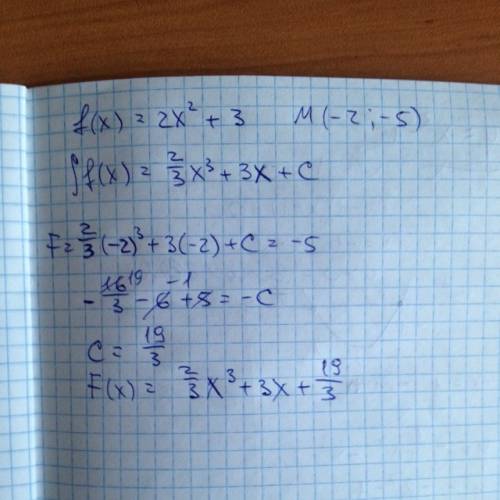 f(x) = 2x² + 3 M(-2; -5)
∫f(x) = 2/3 x³ + 3x + C
F = 2/3 (-2)³ + 3(-2) + C = -5
- 16/3 19 - 6 + 5 -1 = -C
C = 19/3
F(x) = 2/3 x³ + 3x + 19/3